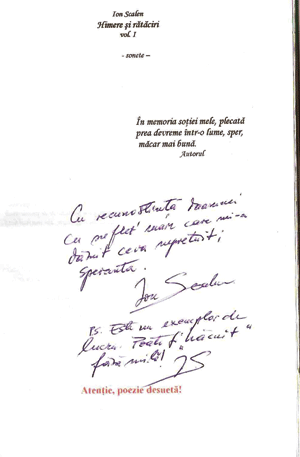 Ion Scalen
Himere și rătăciri
vol. I
- sonete –
În memoria soției mele, plecată
prea devreme într-o lume, sper,
măcar mai bună.
Autorul
Cu recunostinta doamnei
cu suflet mare care mi-a
dăruit ceva nepretuit;
speranta.
Ion Scalen
Ps. Este un exemplar de
lucru. Poate fi "hăcuit"
fără milă! IS
Atenție, poezie desuetă!